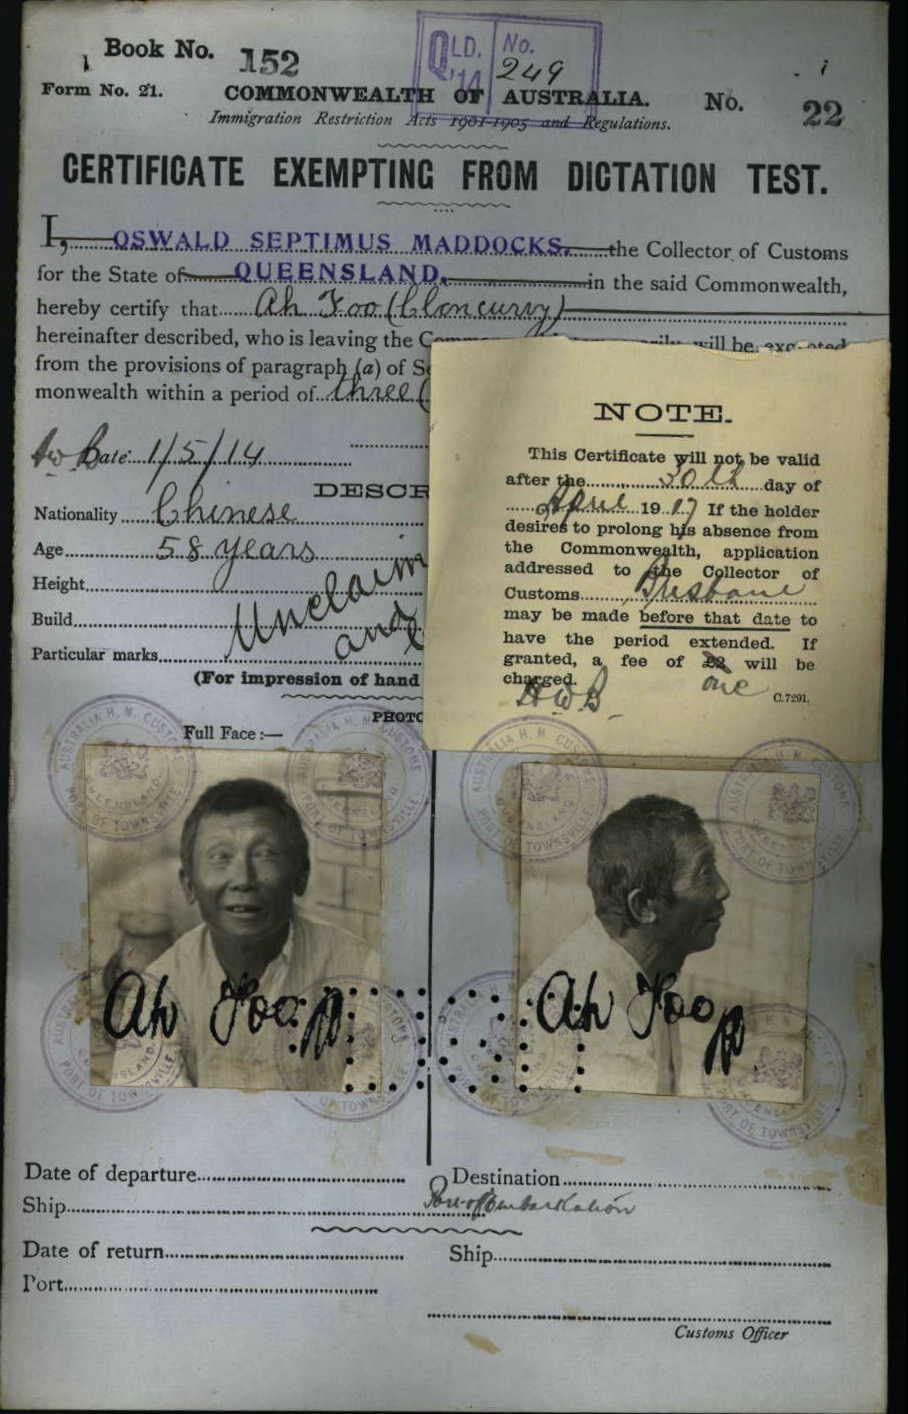 Book No. 152
QLD. '14 No. 249
Form No. 21.
COMMONWEALTH OF AUSTRALIA.
No. 22
Immigration Restriction Acts 1901-1905 and Regulations.
CERTIFICATE EXEMPTING FROM DICTATION TEST.
I, OSWALD SEPTIMUS MADDOCKS, the Collector of Customs
for the State of QUEENSLAND, in the said Commonwealth,
hereby certify that Ah Foo (Cloncurry)
hereinafter described, who is leaving the
will be
from the provisions of paragraph (a) of
monwealth within a period of three (
Date 1/5/14
DESCR
Nationality Chinese
Age 58 years
Height
Build
Particular marks
Unclaim
and
(For impression of hand
PHOTO
Full Face:—
NOTE.
This Certificate will not be valid
after the 30th day of
April 1917 If the holder
desires to prolong his absence from
the Commonwealth, application
addressed to the Collector of
Customs Brisbane
may be made before that date to
have the period extended. If
granted, a fee of £2 will be
one
charged.
H.W.B.
C.7291.
AUSTRALIA H. M. CUSTOMS
QUEENSLAND
PORT OF TOWNSVILLE
AUSTRALIA H. M. CUSTOMS
QUEENSLAND
PORT OF TOWNSVILLE
AUSTRALIA H. M. CUSTOMS
QUEENSLAND
PORT OF TOWNSVILLE
AUSTRALIA H. M. CUSTOMS
QUEENSLAND
PORT OF TOWNSVILLE
Ah Foo
Ah Foo
Date of departure
Destination
Ship
Port of Embarkation
Date of return
Ship
Port
Customs Officer